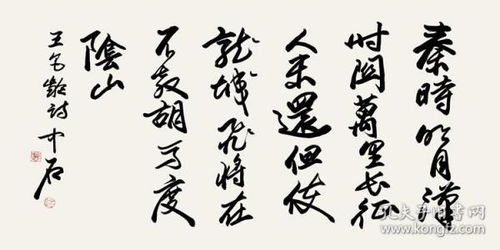 秦時明月漢
时関萬里长征
人未還但使
龍城飛將在
不教胡馬度
陰山
王昌齡詩中石
孔夫子旧书网
www.kongfz.com